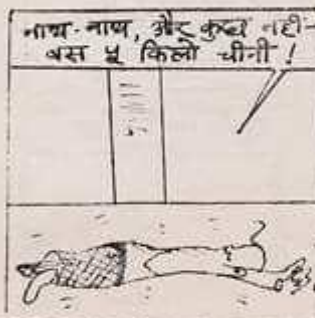 नाथ-नाथ, और कुछ नहीं-
बस ५ किलो चीनी !